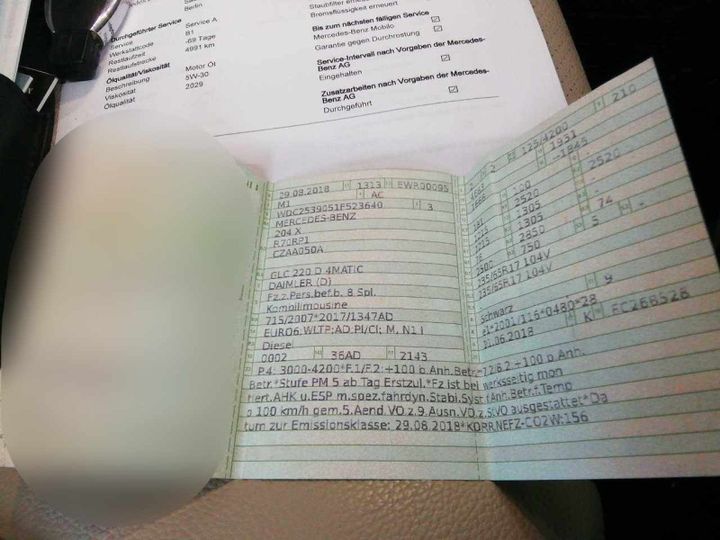 Berlin
Durchgeführter Service Service A
Service B1
Werkstattcode -69 Tage
Restlaufzeit 4991 km
Restlaufstrecke
Ölqualität/Viskosität Motor Öl
Beschreibung 5W-30
Viskosität 2029
Ölqualität
Staubfilter
Bremsflüssigkeit erneuert
Bis zum nächsten fälligen Service
Mercedes-Benz Mobilo
Garantie gegen Durchrostung
Service-Intervall nach Vorgaben der Mercedes-
Benz AG
Eingehalten
Zusatzarbeiten nach Vorgaben der Mercedes-
Benz AG
Durchgeführt
29.08.2018 1313
M1 AC
WDC2539051F523640 3
MERCEDES-BENZ
204 X
R70RP1
CZAA050A
GLC 220 D 4MATIC
DAIMLER (D)
Fz.z.Pers.bef.b. 8 Spl.
Kombilimousine
715/2007*2017/1347AD
EURO6;WLTP;AD;PI/CI; M, N1 I
Diesel
0002 36AD 2143
125/4200 210
1931
100 2520
2520
1305
1305 74
2850 5 -
750
235/65R17 104V
235/65R17 104V
schwarz 9
e1*2001/116*0480*28
01.06.2018 K
P.4: 3000-4200*F.1/F.2:+100 b.Anh.Betr.*7.2/8.2:+100 b.Anh.
Betr.*Stufe PM 5 ab Tag Erstzul.*Fz ist bei werksseitig mon
tiert.AHK u.ESP m.spez.fahrdyn.Stabi.Syst.f.Anh.Betr.f.Temp
o 100 km/h gem.5.Aend.VO z.9.Ausn.VO.z.StVO ausgestattet*Da
tum zur Emissionsklasse: 29.08.2018*KORR.NEFZ-CO2W:156